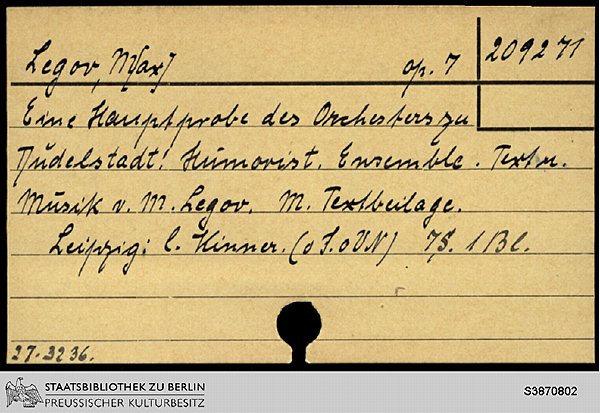 Legov, M[ax] op. 7 209271
Eine Hauptprobe des Orchesters zu
Dudelstadt! Humorist. Ensemble. Text u.
Musik v. M. Legov. M. Textbeilage.
Leipzig: C. Hinner. (o J. o VN) 7S. 1 Bl.
27.3236.
STAATSBIBLIOTHEK ZU BERLIN
PREUSSISCHER KULTURBESITZ
S3870802